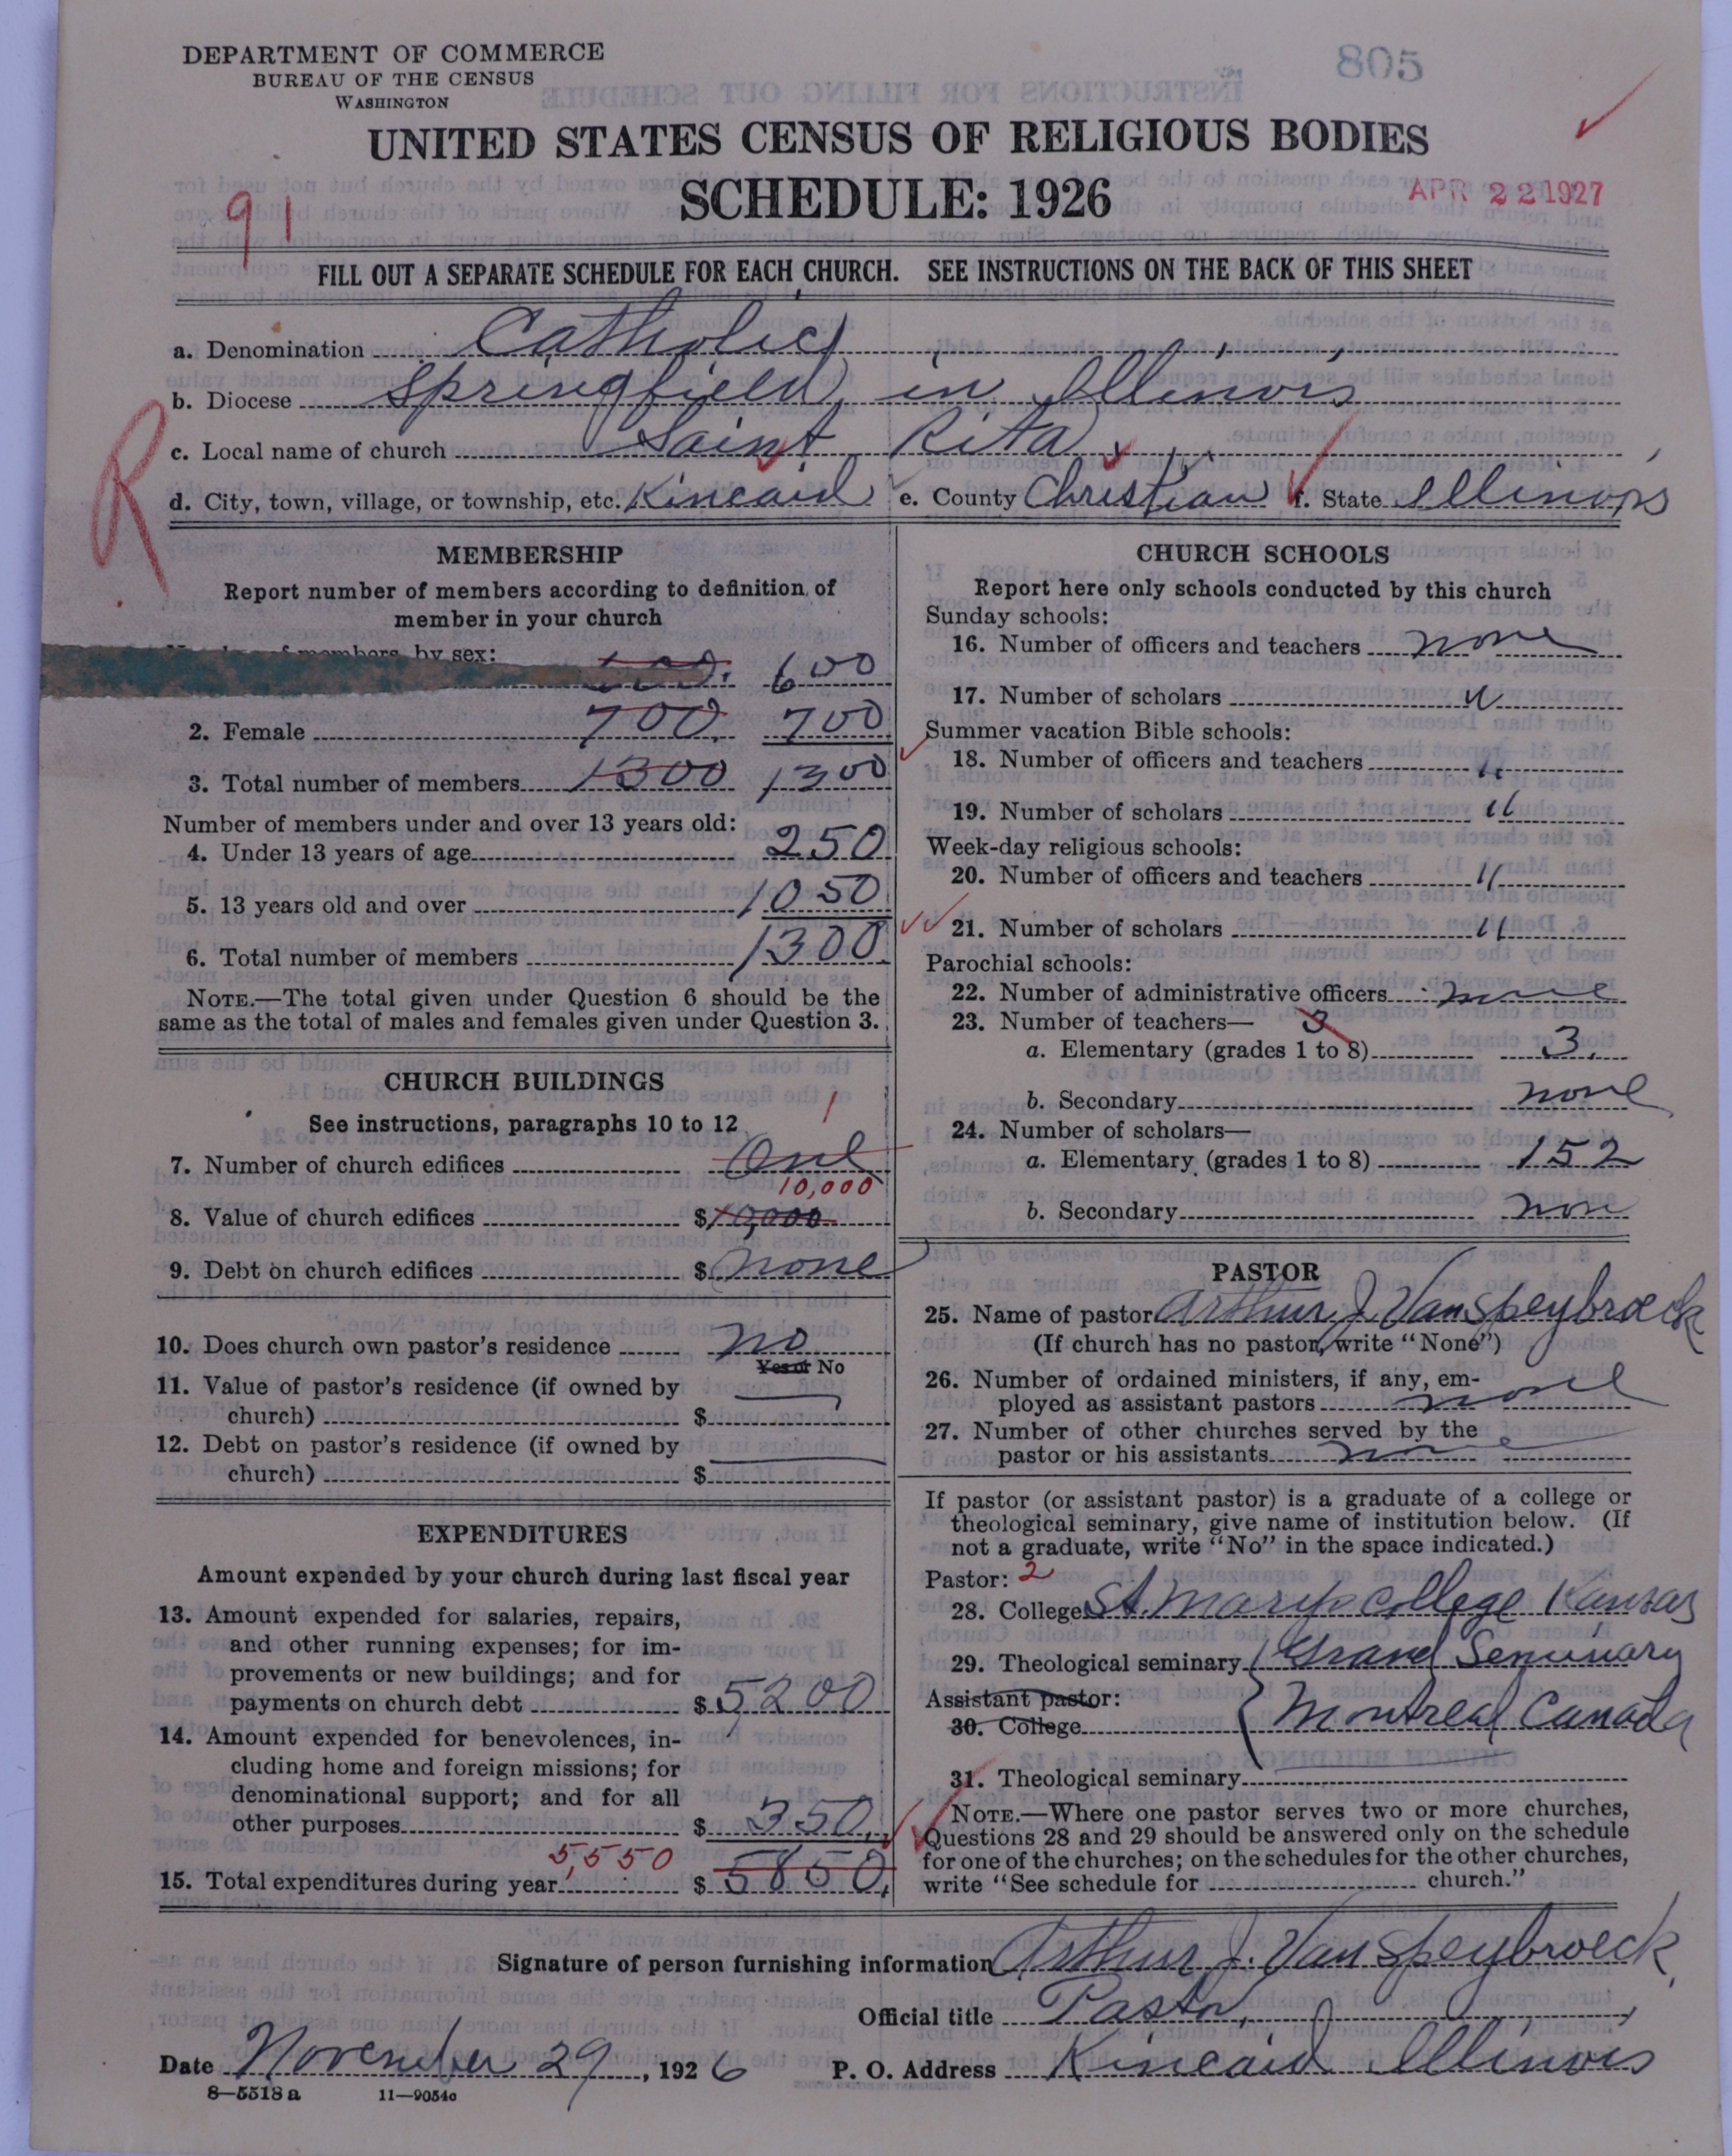 DEPARTMENT OF COMMERCE
BUREAU OF THE CENSUS
WASHINGTON
805
UNITED STATES CENSUS OF RELIGIOUS BODIES
SCHEDULE: 1926
APR 22 1927
91
FILL OUT A SEPARATE SCHEDULE FOR EACH CHURCH. SEE INSTRUCTIONS ON THE BACK OF THIS SHEET
a. Denomination Catholic
b. Diocese Springfield in Illinois
c. Local name of church Saint Rita
R
d. City, town, village, or township, etc. Kincaid e. County Christian f. State Illinois
MEMBERSHIP
Report number of members according to definition of
member in your church
members by sex:
600
2. Female 700. 700
3. Total number of members 1300 1300
Number of members under and over 13 years old:
4. Under 13 years of age 250
5. 13 years old and over 1050
6. Total number of members 1300.
NOTE.—The total given under Question 6 should be the
same as the total of males and females given under Question 3.
CHURCH BUILDINGS
See instructions, paragraphs 10 to 12
1
7. Number of church edifices One
10,000
8. Value of church edifices $10,000
9. Debt on church edifices $ none
10. Does church own pastor's residence no
Yes or No
11. Value of pastor's residence (if owned by
church) $
12. Debt on pastor's residence (if owned by
church) $
EXPENDITURES
Amount expended by your church during last fiscal year
13. Amount expended for salaries, repairs,
and other running expenses; for im-
provements or new buildings; and for
payments on church debt $ 5200
14. Amount expended for benevolences, in-
cluding home and foreign missions; for
denominational support; and for all
other purposes $ 350.
5,550
15. Total expenditures during year $ 5850.
CHURCH SCHOOLS
Report here only schools conducted by this church
Sunday schools:
16. Number of officers and teachers none
17. Number of scholars "
Summer vacation Bible schools:
18. Number of officers and teachers "
19. Number of scholars "
Week-day religious schools:
20. Number of officers and teachers "
21. Number of scholars "
Parochial schools:
22. Number of administrative officers none
23. Number of teachers— 3
a. Elementary (grades 1 to 8) 3.
b. Secondary none
24. Number of scholars—
a. Elementary (grades 1 to 8) 152
b. Secondary none
PASTOR
25. Name of pastor Arthur J. Van Speybroeck
(If church has no pastor, write "None")
26. Number of ordained ministers, if any, em-
ployed as assistant pastors none
27. Number of other churches served by the
pastor or his assistants none
If pastor (or assistant pastor) is a graduate of a college or
theological seminary, give name of institution below. (If
not a graduate, write "No" in the space indicated.)
Pastor: 2
28. College St. Marys College Kansas
29. Theological seminary Grand Seminary
Assistant pastor:
30. College Montreal Canada
31. Theological seminary
NOTE.—Where one pastor serves two or more churches,
Questions 28 and 29 should be answered only on the schedule
for one of the churches; on the schedules for the other churches,
write "See schedule for church."
Signature of person furnishing information Arthur J. Van Speybroeck
Official title Pastor,
Date November 29, 1926 P. O. Address Kincaid Illinois
8—5518a 11—9054a